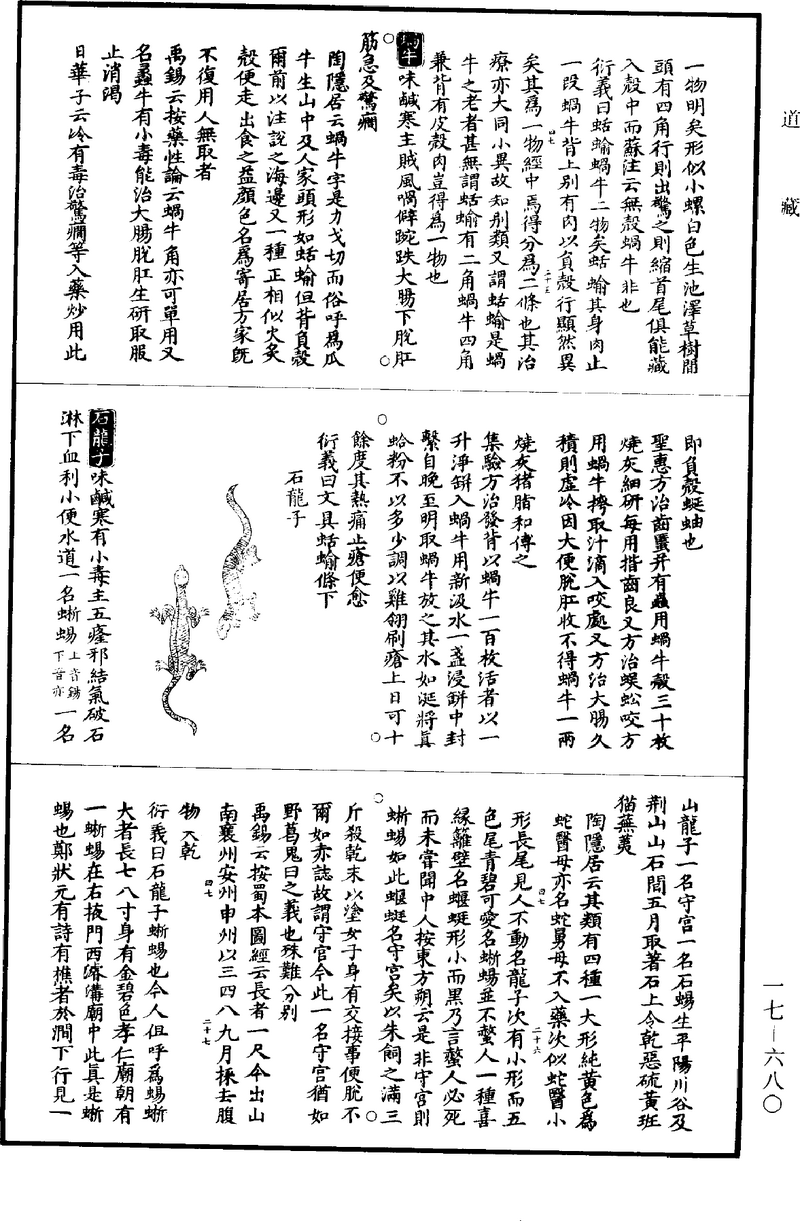 道藏
一物明矣形似小螺白色生池澤草樹間
頭有四角行則出驚之則縮首尾俱能藏
入殼中而蘇注云無殼蝸牛非也
衍義曰蛞蝓蝸牛二物矣蛞蝓其身肉止
一段蝸牛背上別有肉以負殼行顯然異
矣其爲一物經中焉得分爲二條也其治
療亦大同小異故知別類又謂蛞蝓是蝸
牛之老者甚無謂蛞蝓有二角蝸牛四角
兼背有皮殼肉豈得爲一物也
蝸牛味鹹寒主賊風喎僻踠跌大腸下脫肛
筋急及驚癇
陶隱居云蝸牛字是力戈切而俗呼爲瓜
牛生山中及人家頭形如蛞蝓但背負殼
爾前以注說之海邊又一種正相似火炙
殼便走出食之益顏色名爲寄居方家旣
不復用人無取者
禹錫云按藥性論云蝸牛角亦可單用又
名蠡牛有小毒能治大腸脫肛生研取服
止消渴
日華子云冷有毒治驚癇等入藥炒用此
即負殼蜒蚰也
聖惠方治齒䘌并有蟲用蝸牛殼三十枚
燒灰細研每用揩齒良又方治蜈蚣咬方
用蝸牛摶取汁滴入咬處又方治大腸久
積則虛冷因大便脫肛收不得蝸牛一兩
燒灰猪脂和傅之
集驗方治發背以蝸牛一百枚活者以一
升淨缾入蝸牛用新汲水一盞浸缾中封
繫自晚至明取蝸牛放之其水如涎將眞
蛤粉不以多少調以雞翎刷瘡上日可十
餘度其熱痛止瘡便愈
衍義曰文具蛞蝓條下
石龍子
石龍子味鹹寒有小毒主五癃邪結氣破石
淋下血利小便水道一名蜥蜴上音錫下音亦一名
山龍子一名守宮一名石蜴生平陽川谷及
荆山山石間五月取著石上令乾惡硫黃班
猫蕪荑
陶隱居云其類有四種一大形純黃色爲
蛇醫母亦名蛇舅母不入藥次似蛇醫小
形長尾見人不動名龍子次有小形而五
色尾青碧可愛名蜥蜴並不螫人一種喜
緣籬壁名蝘蜓形小而黑乃言螫人必死
而未嘗聞中人按東方朔云是非守宮則
蜥蜴如此蝘蜓名守宮矣以朱飼之滿三
斤殺乾末以塗女子身有交接事便脫不
爾如赤誌故謂守宮今此一名守宮猶如
野葛鬼臼之義也殊難分別
禹錫云按蜀本圖經云長者一尺今出山
南襄州安州申州以三四八九月採去腹
物火乾
衍義曰石龍子蜥蜴也今人但呼爲蜴蜥
大者長七八寸身有金碧色孝仁廟朝有
一蜥蜴在右掖門西濬溝廟中此眞是蜥
蜴也鄭狀元有詩有樵者於澗下行見一
一七—六八〇